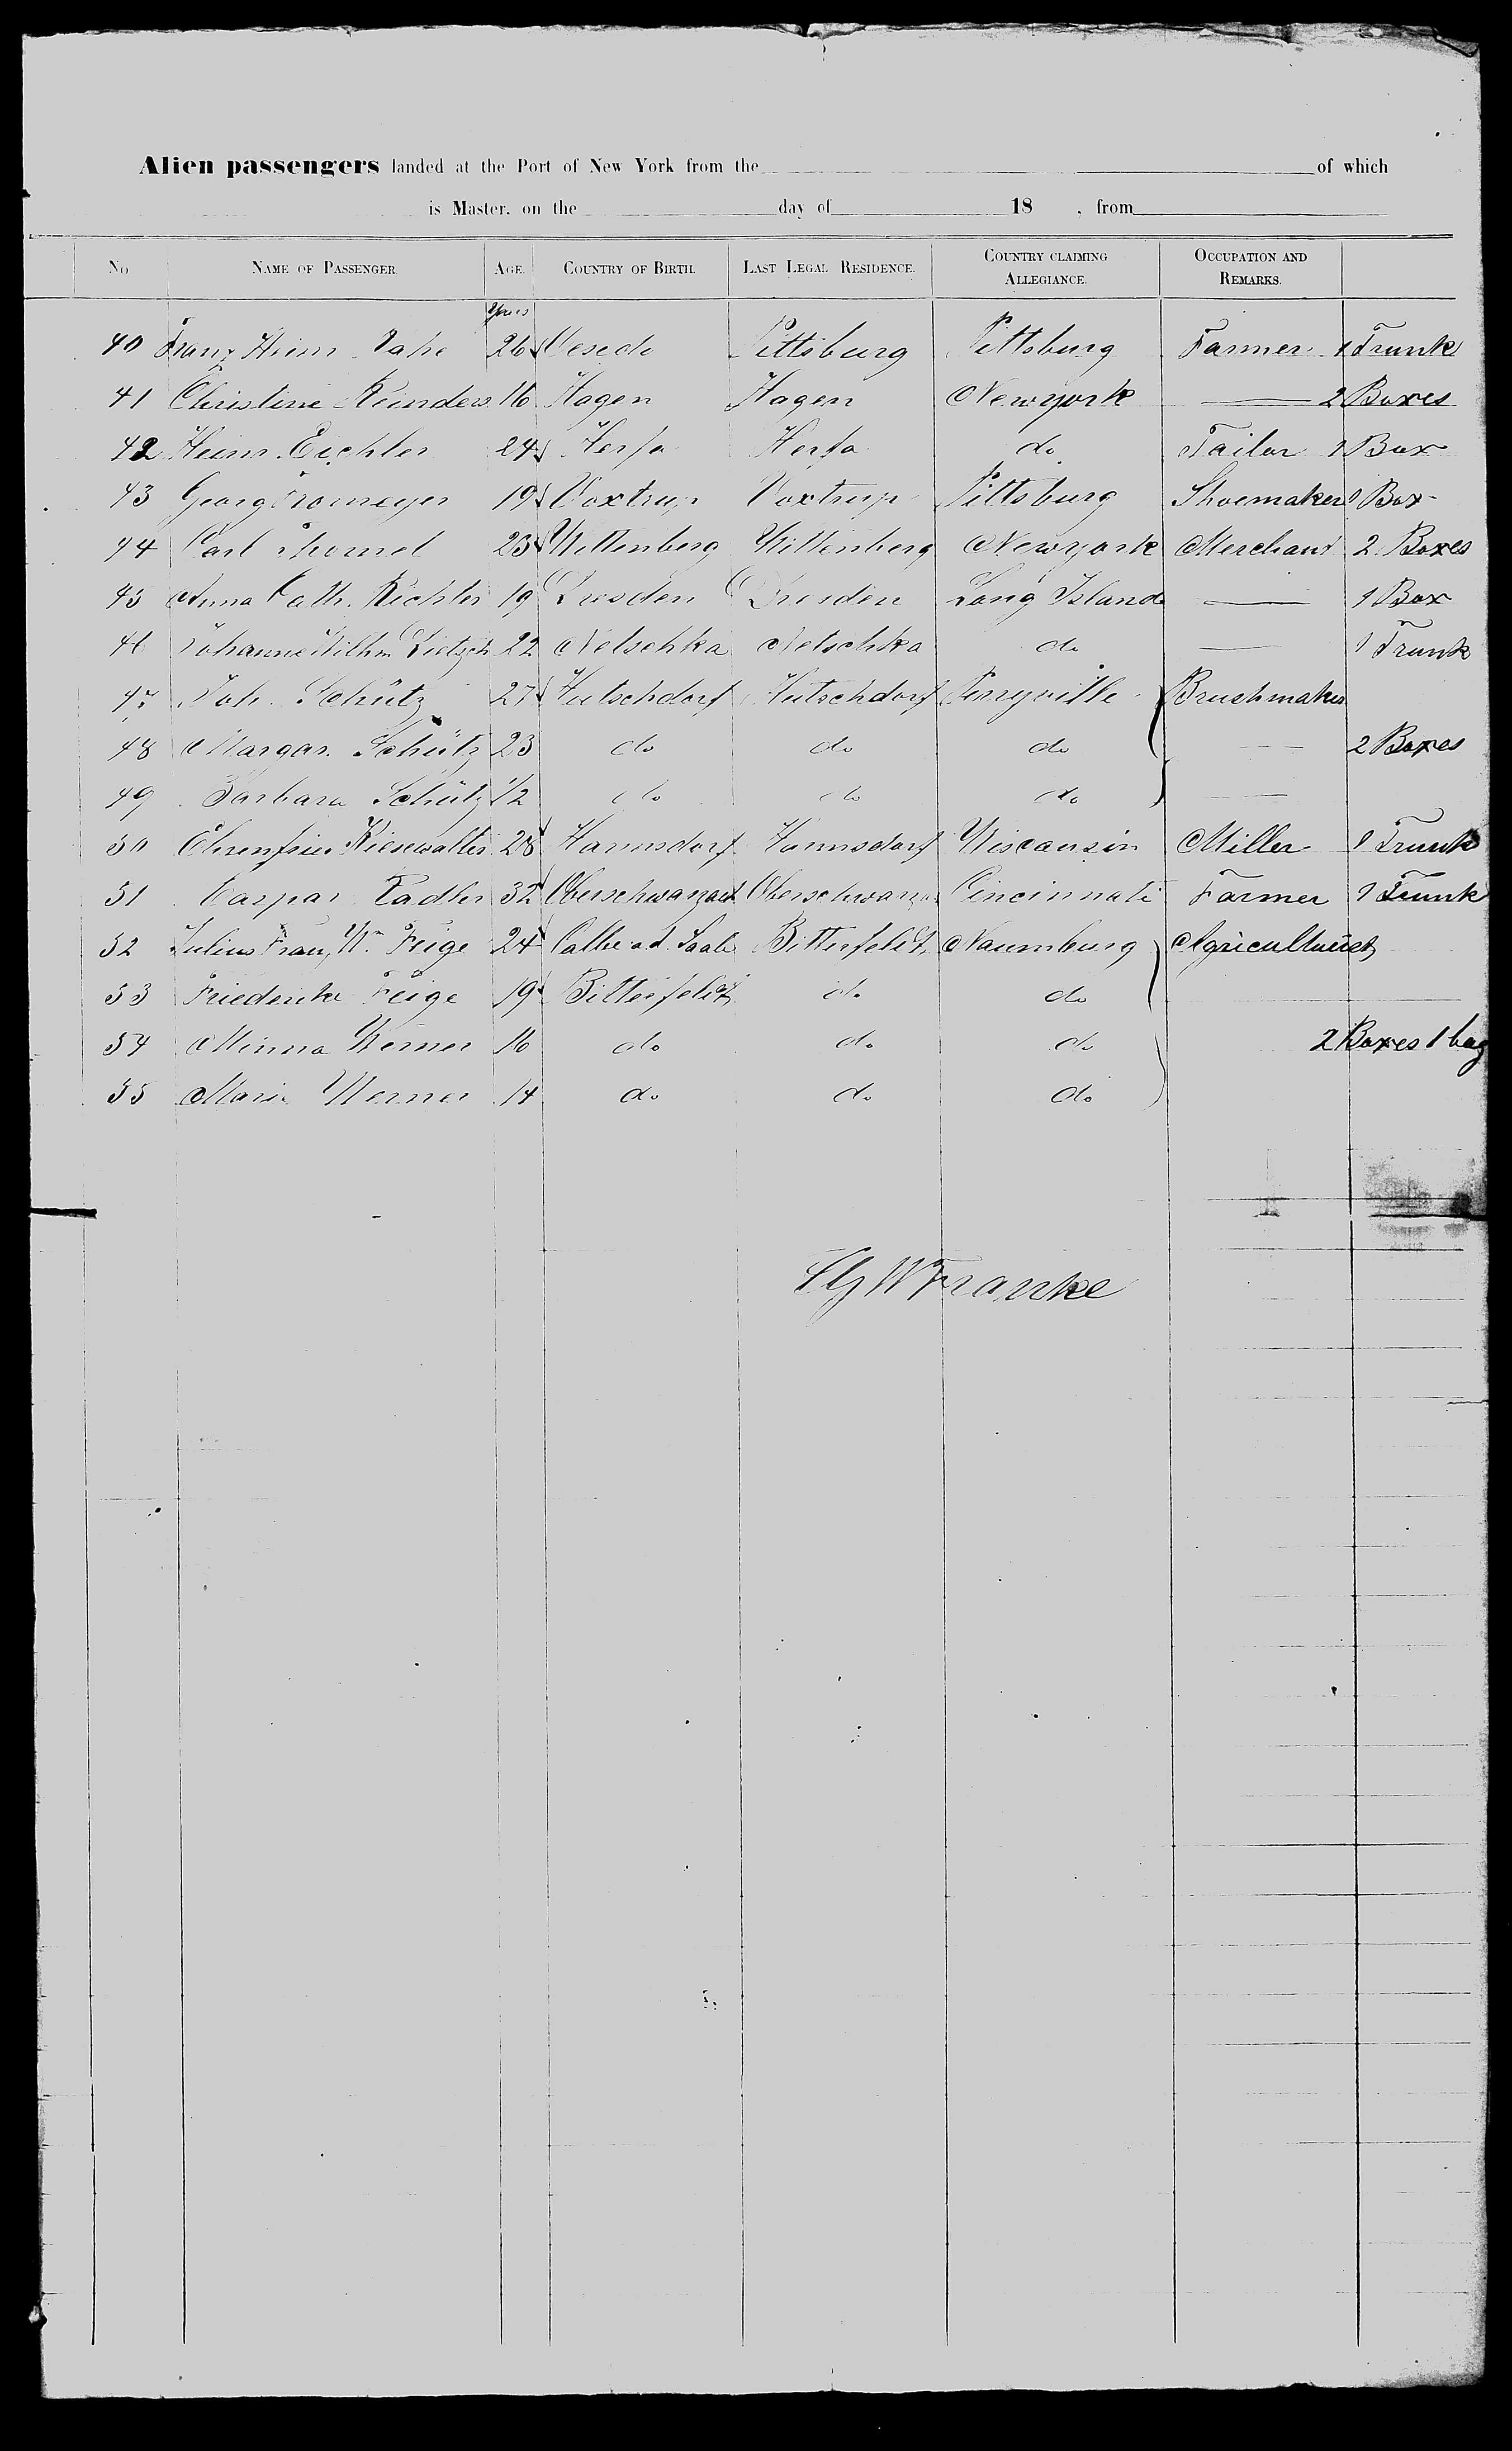 Alien passengers landed at the Port of New York from the of which
is Master, on the day of 18 , from
No NAME OF PASSENGER. AGE. COUNTRY OF BIRTH. LAST LEGAL RESIDENCE. COUNTRY CLAIMING ALLEGIANCE. OCCUPATION AND REMARKS.
Years
40 Franz Heinr. 26 Oesede Pittsburg Pittsburg Farmer 1 Trunk
41 Christine Reinders 16 Hagen Hagen Newyork — 2 Boxes
42 Heinr. Eichler 24 Herfa Herfa do Tailor 1 Box
43 Georg Tromeyer 19 Voxtrup Voxtrup Pittsburg Shoemaker 1 Box
44 Carl 23 Wittenberg Wittenberg Newyork Merchant 2 Boxes
45 Anna Cath. Richler 19 Dresden Dresden Long Island — 1 Box
46 Johanne Wilhm. Dietzsch 22 Netschka Netschka do — 1 Trunk
47 Joh. Schütz 27 Hutschdorf Hutschdorf Perryville Brushmaker
48 Margar. Schütz 23 do do do — 2 Boxes
49 Barbara Schütz 1/2 do do do —
50 Ehrenfried Kiesewalter 28 Harmsdorf Harmsdorf Wiscansin Miller 1 Trunk
51 Caspar Tadler 32 Oberschwarzach Oberschwarzach Cincinnati Farmer 1 Trunk
52 Julius Franz Wm Feige 24 Calbe a.d. Saale Bitterfeldt Naumburg Agriculturist
53 Friederike Feige 19 Bitterfeldt do do
54 Minna Werner 16 do do do 2 Boxes 1 bag
55 Marie Werner 14 do do do
Franke